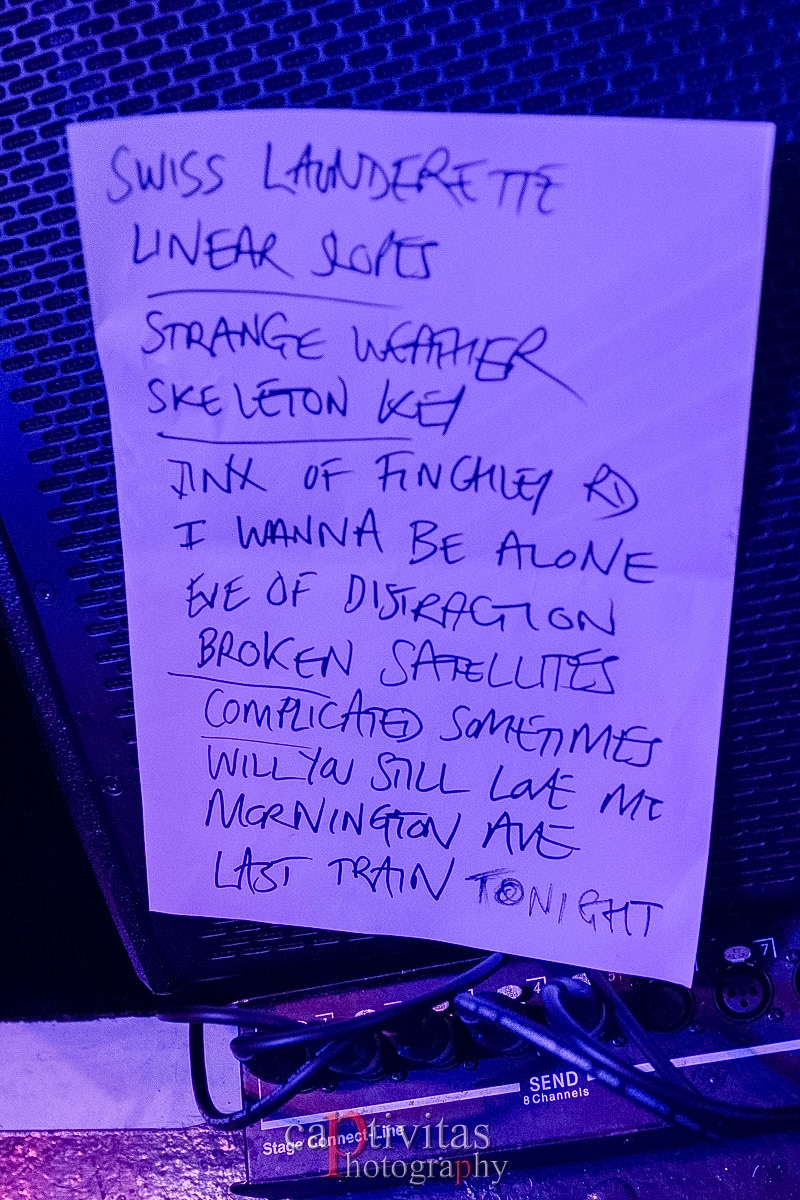 SWISS LAUNDERETTE
LINEAR SLOPES
STRANGE WEATHER
SKELETON KEY
JINX OF FINCHLEY RD
I WANNA BE ALONE
EVE OF DISTRACTION
BROKEN SATELLITES
COMPLICATED SOMETIMES
WILL YOU STILL LOVE ME
MORNINGTON AVE
LAST TRAIN TONIGHT
7
4
SEND
8 Channels
Stage Connect Line
captivitas
Photography